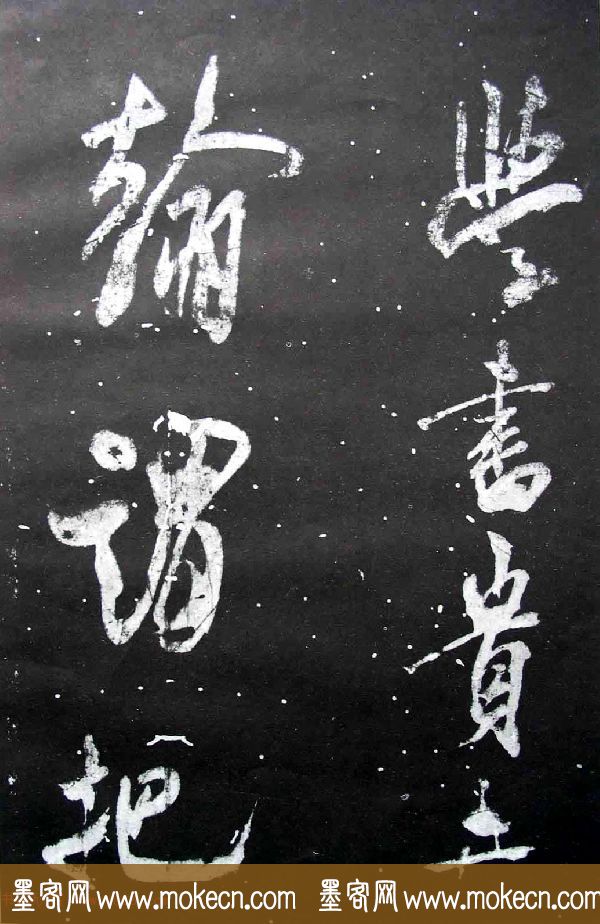 學書貴
翰謂把
墨客网 www.mokecn.com 墨客网 www.mokecn.com